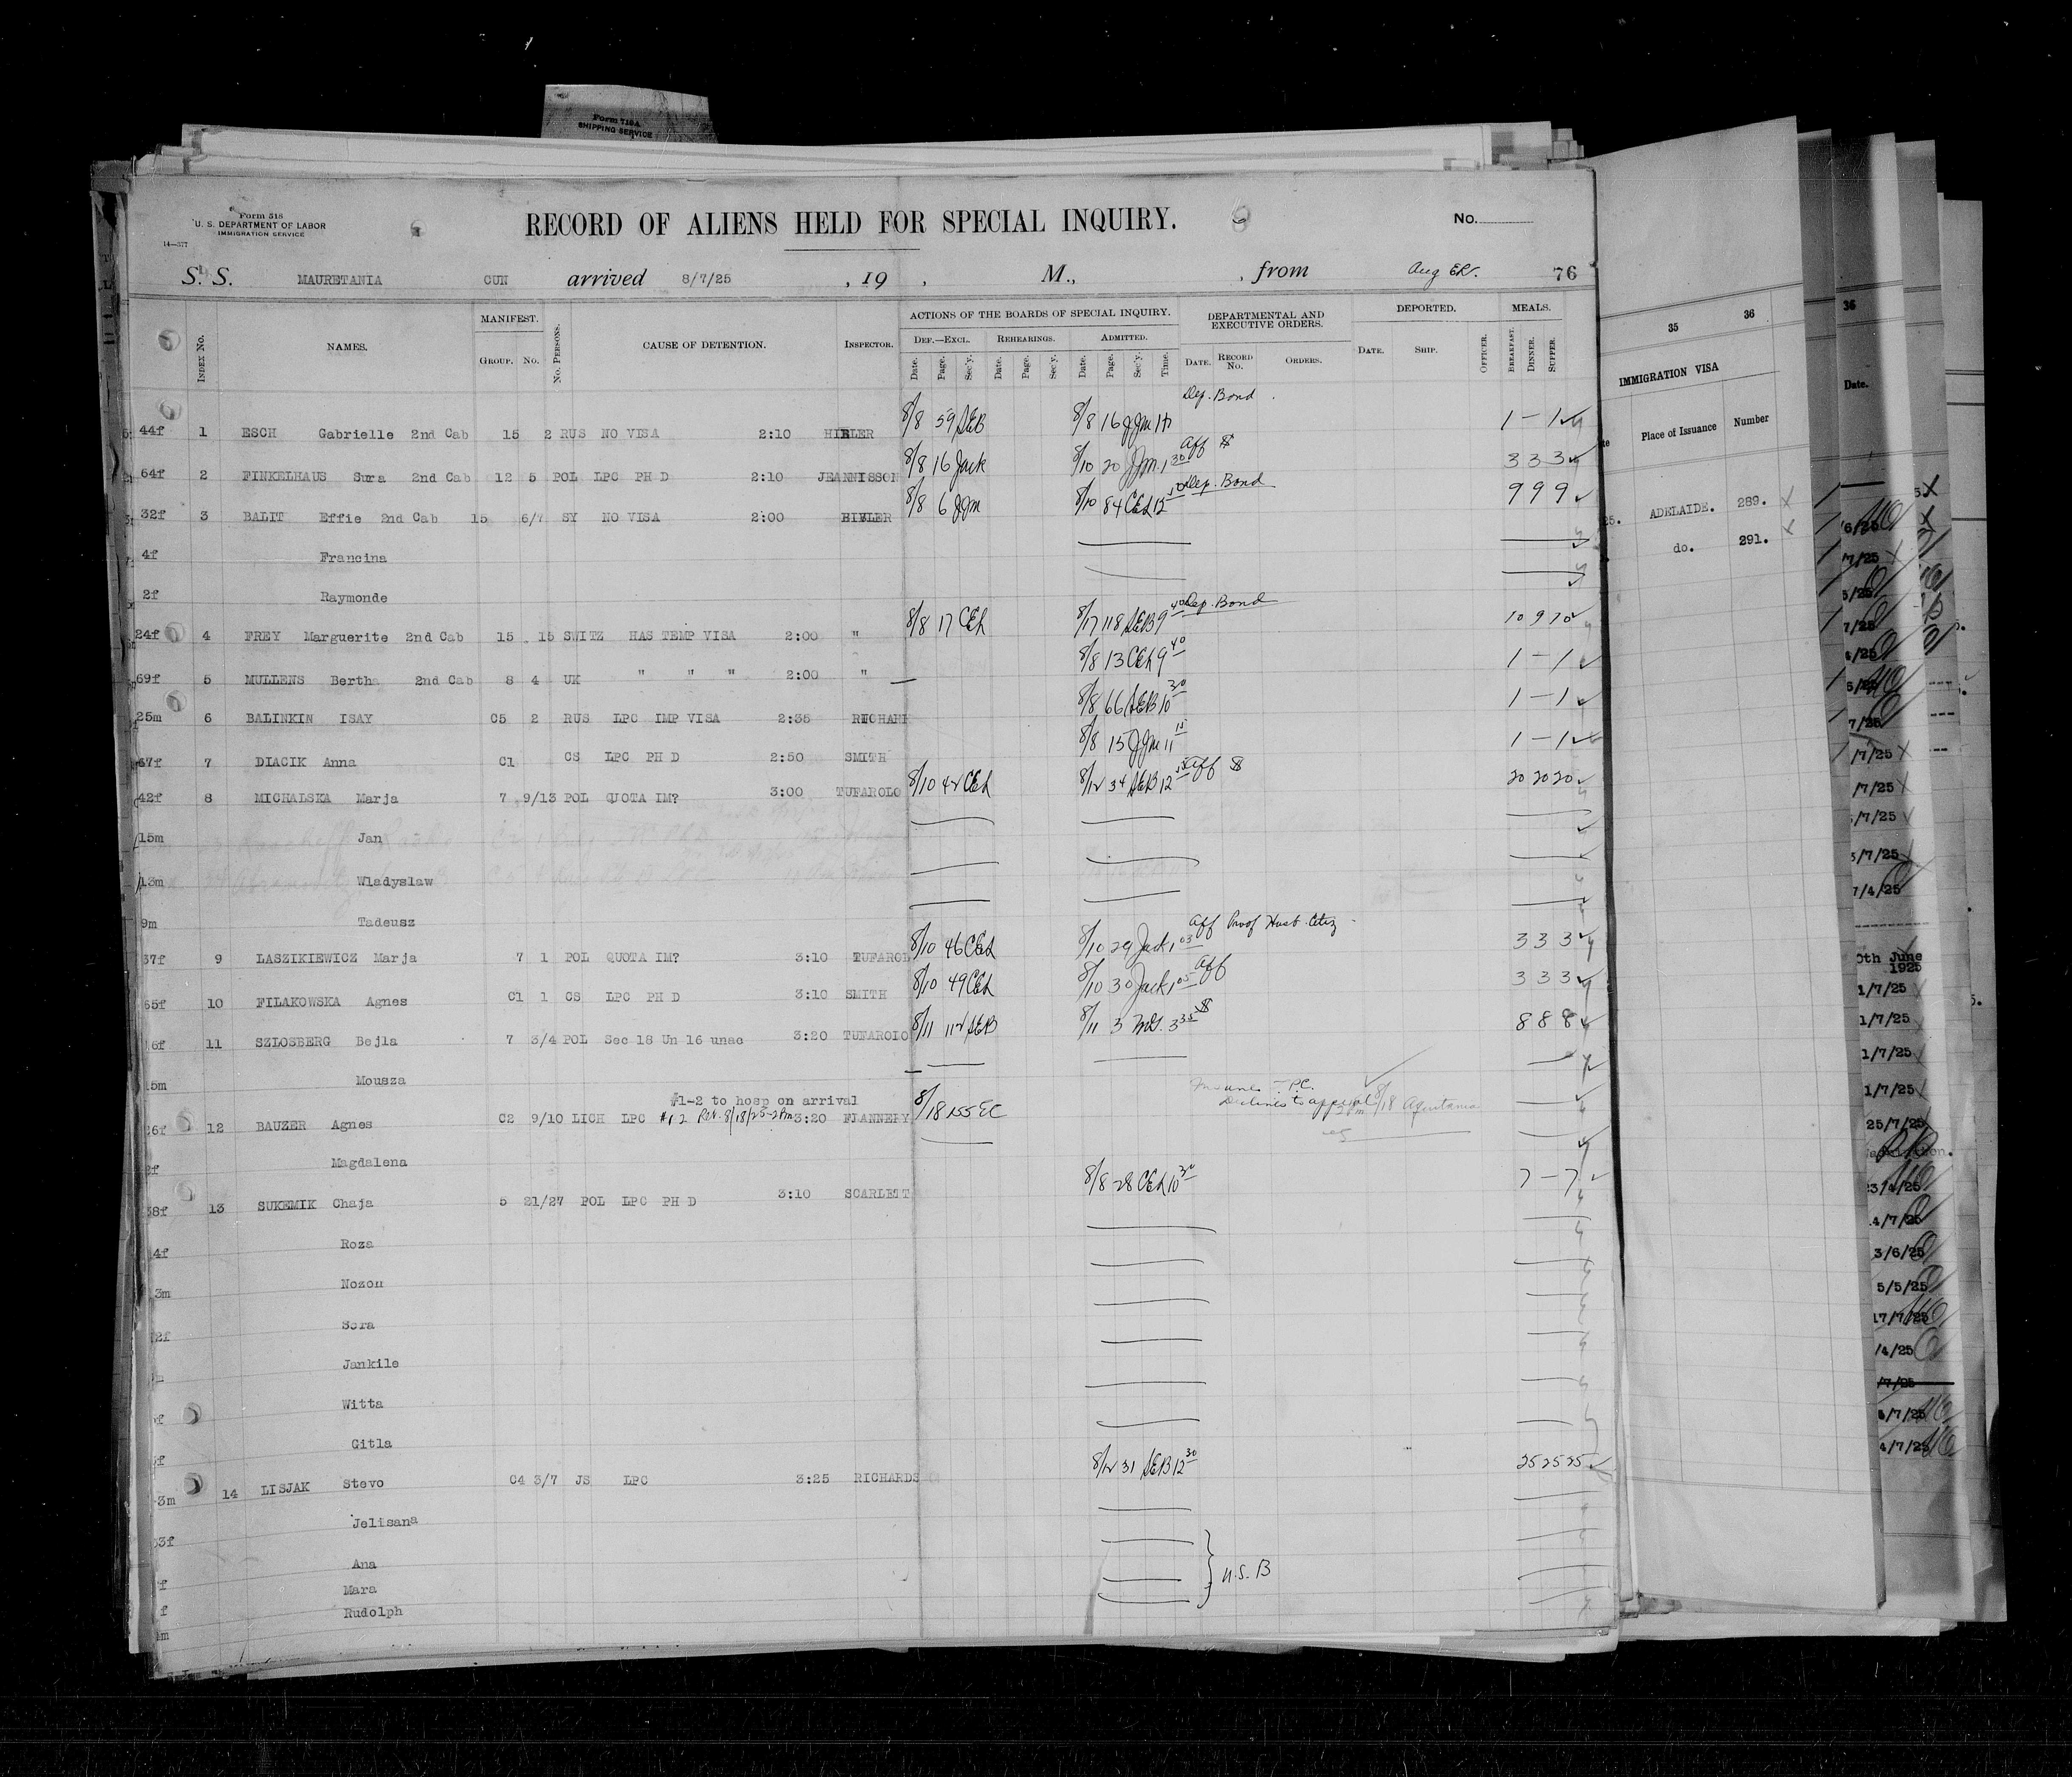 Form 710A
SHIPPING SERVICE
Form 518
U. S. DEPARTMENT OF LABOR
IMMIGRATION SERVICE
14—577
RECORD OF ALIENS HELD FOR SPECIAL INQUIRY.
No.
S. S. MAURETANIA CUN arrived 8/7/25 , 19 , M., , from Aug 76
INDEX No. NAMES. MANIFEST. GROUP. No. No. PERSONS. CAUSE OF DETENTION. INSPECTOR. ACTIONS OF THE BOARDS OF SPECIAL INQUIRY. DEPARTMENTAL AND EXECUTIVE ORDERS. DEPORTED. MEALS.
DEF.—EXCL. REHEARINGS. ADMITTED.
Date. Page. Sec'y. Date. Page. Sec'y. Date. Page. Sec'y. Time. DATE. RECORD No. ORDERS. DATE. SHIP. OFFICER. BREAKFAST. DINNER. SUPPER.
Dep. Bond
44f 1 ESCH Gabrielle 2nd Cab 15 2 RUS NO VISA 2:10 8/8 59 SEB 8/8 16 JJM 1 — 1
64f 2 FINKELHAUS Sura 2nd Cab 12 5 POL LPC PH D 2:10 JEANNISSON 8/8 16 Jack 8/10 20 JJM 1 30 Aff $ 3 3 3
32f 3 BALIT Effie 2nd Cab 15 6/7 SY NO VISA 2:00 8/8 6 JJM 8/10 84 CEL 12 Dep. Bond 9 9 9
4f Francina
2f Raymonde
24f 4 FREY Marguerite 2nd Cab 15 15 SWITZ HAS TEMP VISA 2:00 " 8/8 17 CEL 8/17 118 SEB 9 40 Dep. Bond 10 9 10
69f 5 MULLENS Bertha 2nd Cab 8 4 UK " " " 2:00 " 8/8 13 CEL 9 40 1 — 1
25m 6 BALINKIN ISAY C5 2 RUS LPC IMP VISA 2:35 8/8 66 SEB 10 30 1 — 1
67f 7 DIACIK Anna C1 CS LPC PH D 2:50 SMITH 8/8 15 JJM 11 1 — 1
42f 8 MICHALSKA Marja 7 9/13 POL QUOTA IM? 3:00 TUFAROLO 8/10 42 CEL 8/12 34 SEB 12 Aff $ 20 20 20
15m Jan
13m Wladyslaw
9m Tadeusz
37f 9 LASZIKIEWICZ Marja 7 1 POL QUOTA IM? 3:10 TUFAROL 8/10 46 CEL 8/10 29 Jack 1 03 Aff Proof Husb. Citiz 3 3 3
65f 10 FILAKOWSKA Agnes C1 1 CS LPC PH D 3:10 SMITH 8/10 49 CEL 8/10 30 Jack 1 05 Aff 3 3 3
6f 11 SZLOSBERG Bejla 7 3/4 POL Sec 18 Un 16 unac 3:20 TUFAROLO 8/11 112 SEB 8/11 3 3 35 $ 8 8 8
5m Mousza
#1-2 to hosp on arrival
26f 12 BAUZER Agnes C2 9/10 LICH LPC #1-2 Ret. 8/18/25-2Pm 3:20 FLANNERY 8/18 155 EC Insane LPC. Declines to appeal 8/18 Aquitania
2f Magdalena
38f 13 SUKEMIK Chaja 5 21/27 POL LPC PH D 3:10 SCARLETT 8/8 28 CEL 10 30 7 — 7
4f Roza
3m Nozon
2f Sora
Jankile
f Witta
f Gitla
3m 14 LISJAK Stevo C4 3/7 JS LPC 3:25 RICHARDS 8/12 31 SEB 12 30 25 25 25
33f Jelisana
f Ana
f Mara U.S. B
m Rudolph
35 36
IMMIGRATION VISA
Place of Issuance Number
25. ADELAIDE. 289. X
do. 291. X
36
Date.
6/25
7/25
5/25
7/25
6/25
7/25
/7/25
/7/25
/7/25
5/7/25
7/4/25
0th June
1925
1/7/25
1/7/25
1/7/25
1/7/25
25/7/25
23/4/25
4/7/25
3/6/25
5/5/25
17/7/25
/4/25
/7/25
4/7/25